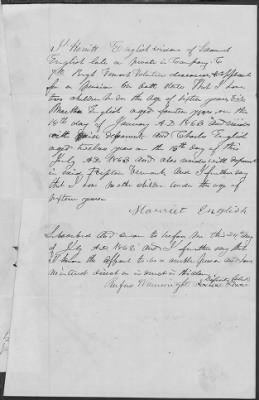 I Harriet English widow of Samuel
English late a Private in Company C
7th Regt Vermont Volunteers
for a Pension do state that I have
two children under the age of sixteen years
English aged fourteen years on the
16th day of January A.D. 1863 and resides
with said deponent and Charles English
aged twelve years on the 15th day of this
July A.D. 1863 and also resides with deponent
in said Vermont and I further say
that I have no other children under the age of
sixteen years
Harriet English
Subscribed and sworn to before me this 24 day
of July A.D. 1863 and I further say that
I know the applicant to be a credible person and have
no interest direct or indirect in this claim
Rufus Wainwright